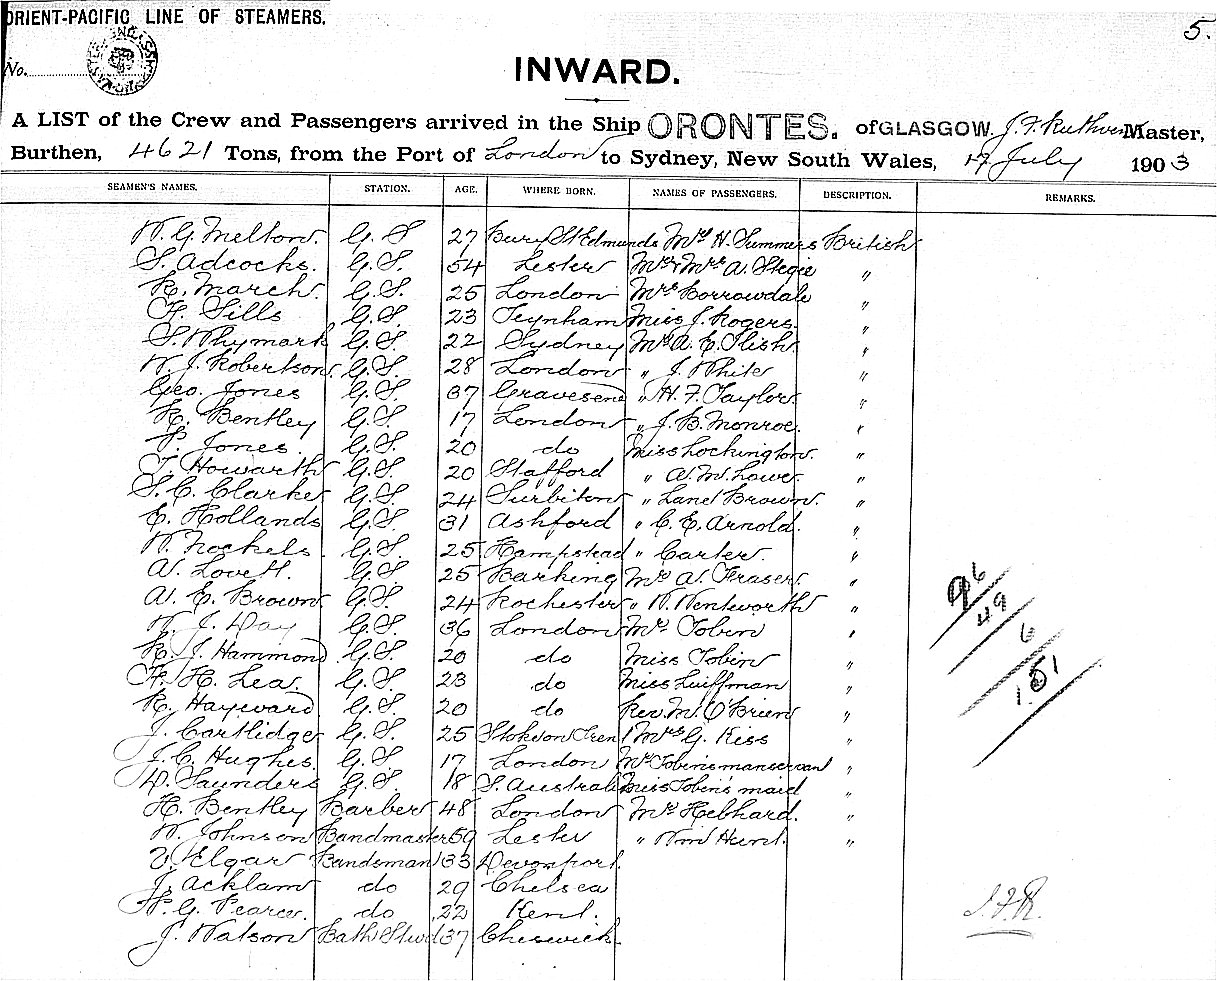 ORIENT-PACIFIC LINE OF STEAMERS.
5.
No.
INWARD.
A LIST of the Crew and Passengers arrived in the Ship ORONTES. of GLASGOW. J. F. Ruthven Master,
Burthen, 4621 Tons, from the Port of London to Sydney, New South Wales, 17 July 1903
SEAMEN'S NAMES. STATION. AGE. WHERE BORN. NAMES OF PASSENGERS. DESCRIPTION. REMARKS.
W. G. Melton. G. S 27 Bury St Edmunds Mrs H. Summers British
S. Adcocks. G. S. 54 Lester Mr & Mrs A. Stegie "
R. March. G. S. 25 London Mrs Borrowdale "
F. Sills G. S. 23 Teynham Miss J. Rogers. "
S. Whymark G. S. 22 Sydney Mr A. E. "
W. J. Robertson. G. S. 28 London " J. White "
Geo. Jones G. S. 37 Gravesend " H. F. Taylor "
R. Bentley G. S. 17 London " J. B. Monroe. "
P. Jones. G. S. 20 do Miss Lockington. "
T. Howarth G. S. 20 Stafford " A. M. Lowe. "
S. C. Clarke G. S. 24 Surbiton " Lane Brown. "
E. Hollands G. S. 31 Ashford " C. E. Arnold. "
W. Nockels. G. S. 25 Hampstead " Carter. "
A. Lovett. G. S. 25 Barking Mr A. Fraser. "
A. E. Brown. G. S. 24 Rochester " W. Wentworth "
W. J. Day G. S. 36 London Mr Tobin "
R. J. Hammond G. S. 20 do Miss Tobin "
F. H. Lea. G. S. 23 do Miss Luiffman "
R. Hayward G. S. 20 do Rev. M. O'Brien "
J. Cartlidge G. S. 25 Stoke on Trent Mrs G. Kiss "
J. C. Hughes. G. S. 17 London Mr Tobin's manservant "
W. Saunders G. S. 18 S. Australia Miss Tobin's maid "
H. Bentley Barber 48 London Mr Hebhard. "
W. Johnson Bandmaster 59 Lester " Wm Hunt. "
V. Elgar Bandsman 33 Devonport.
J. Acklam do 29 Chelsea
P. G. Pearce. do 22 Kent.
J. Watson Bath Stwd 37 Cheswick
96
49
6
151
J. F. R.